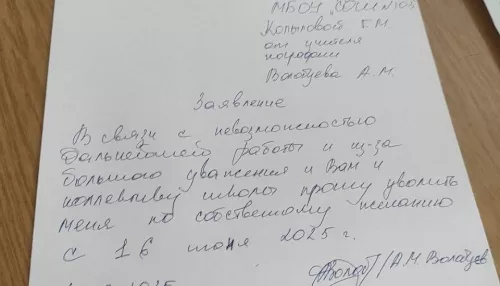 МБОУ "СОШ N109
Копыловой Г.М
от учителя
географии
Волобуева А.М.
Заявление
В связи с невозможностью
дальнейшей работы и из-за
большого уважения к Вам и
коллективу школы прошу уволить
меня по собственному желанию
с 16 июня 2025 г.
А.М Волобуев
2025